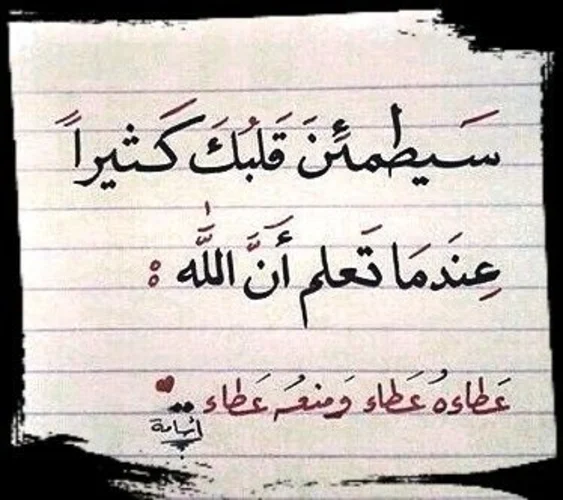 سَيطمئنَ قَلبُكَ كَثيراً
عِندَمَا تَعلم أَنَّ اللَّه :
عَطاءهُ عَطاء وَمنعُه عَطاء ..
أسامة